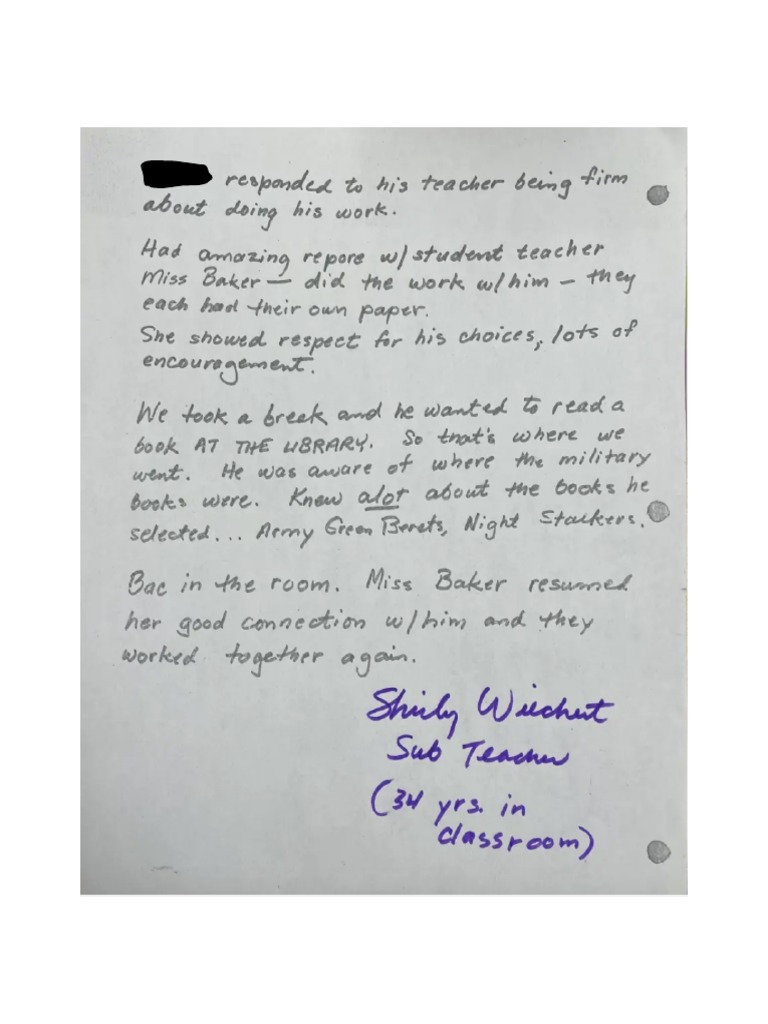 responded to his teacher being firm
about doing his work.
Had amazing repore w/student teacher
Miss Baker — did the work w/him — they
each had their own paper.
She showed respect for his choices, lots of
encouragement.
We took a break and he wanted to read a
book AT THE LIBRARY. So that's where we
went. He was aware of where the military
books were. Knew alot about the books he
selected... Army Green Berets, Night Stalkers.
Bac in the room. Miss Baker resumed
her good connection w/him and they
worked together again.
Shirly Wiechert
Sub Teacher
(34 yrs. in
classroom)